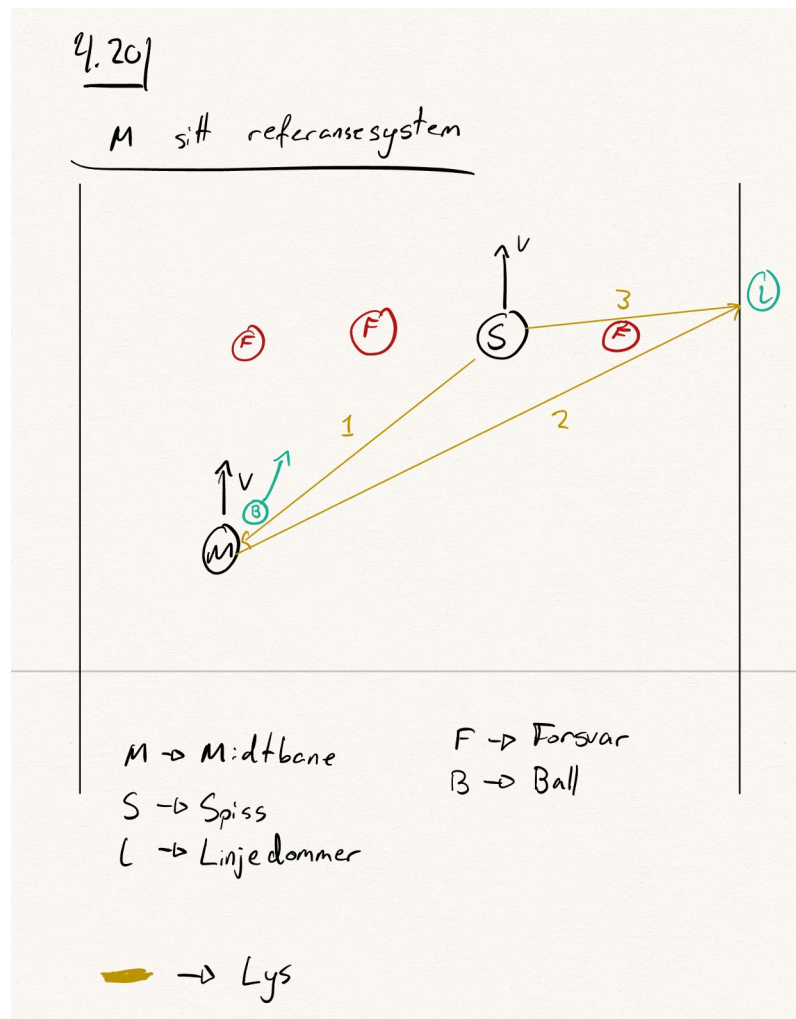 4.20
M sitt referansesystem
V
S
3
L
F
F
F
1
2
V
B
M
M → Midtbane
S → Spiss
L → Linjedommer
F → Forsvar
B → Ball
→ Lys